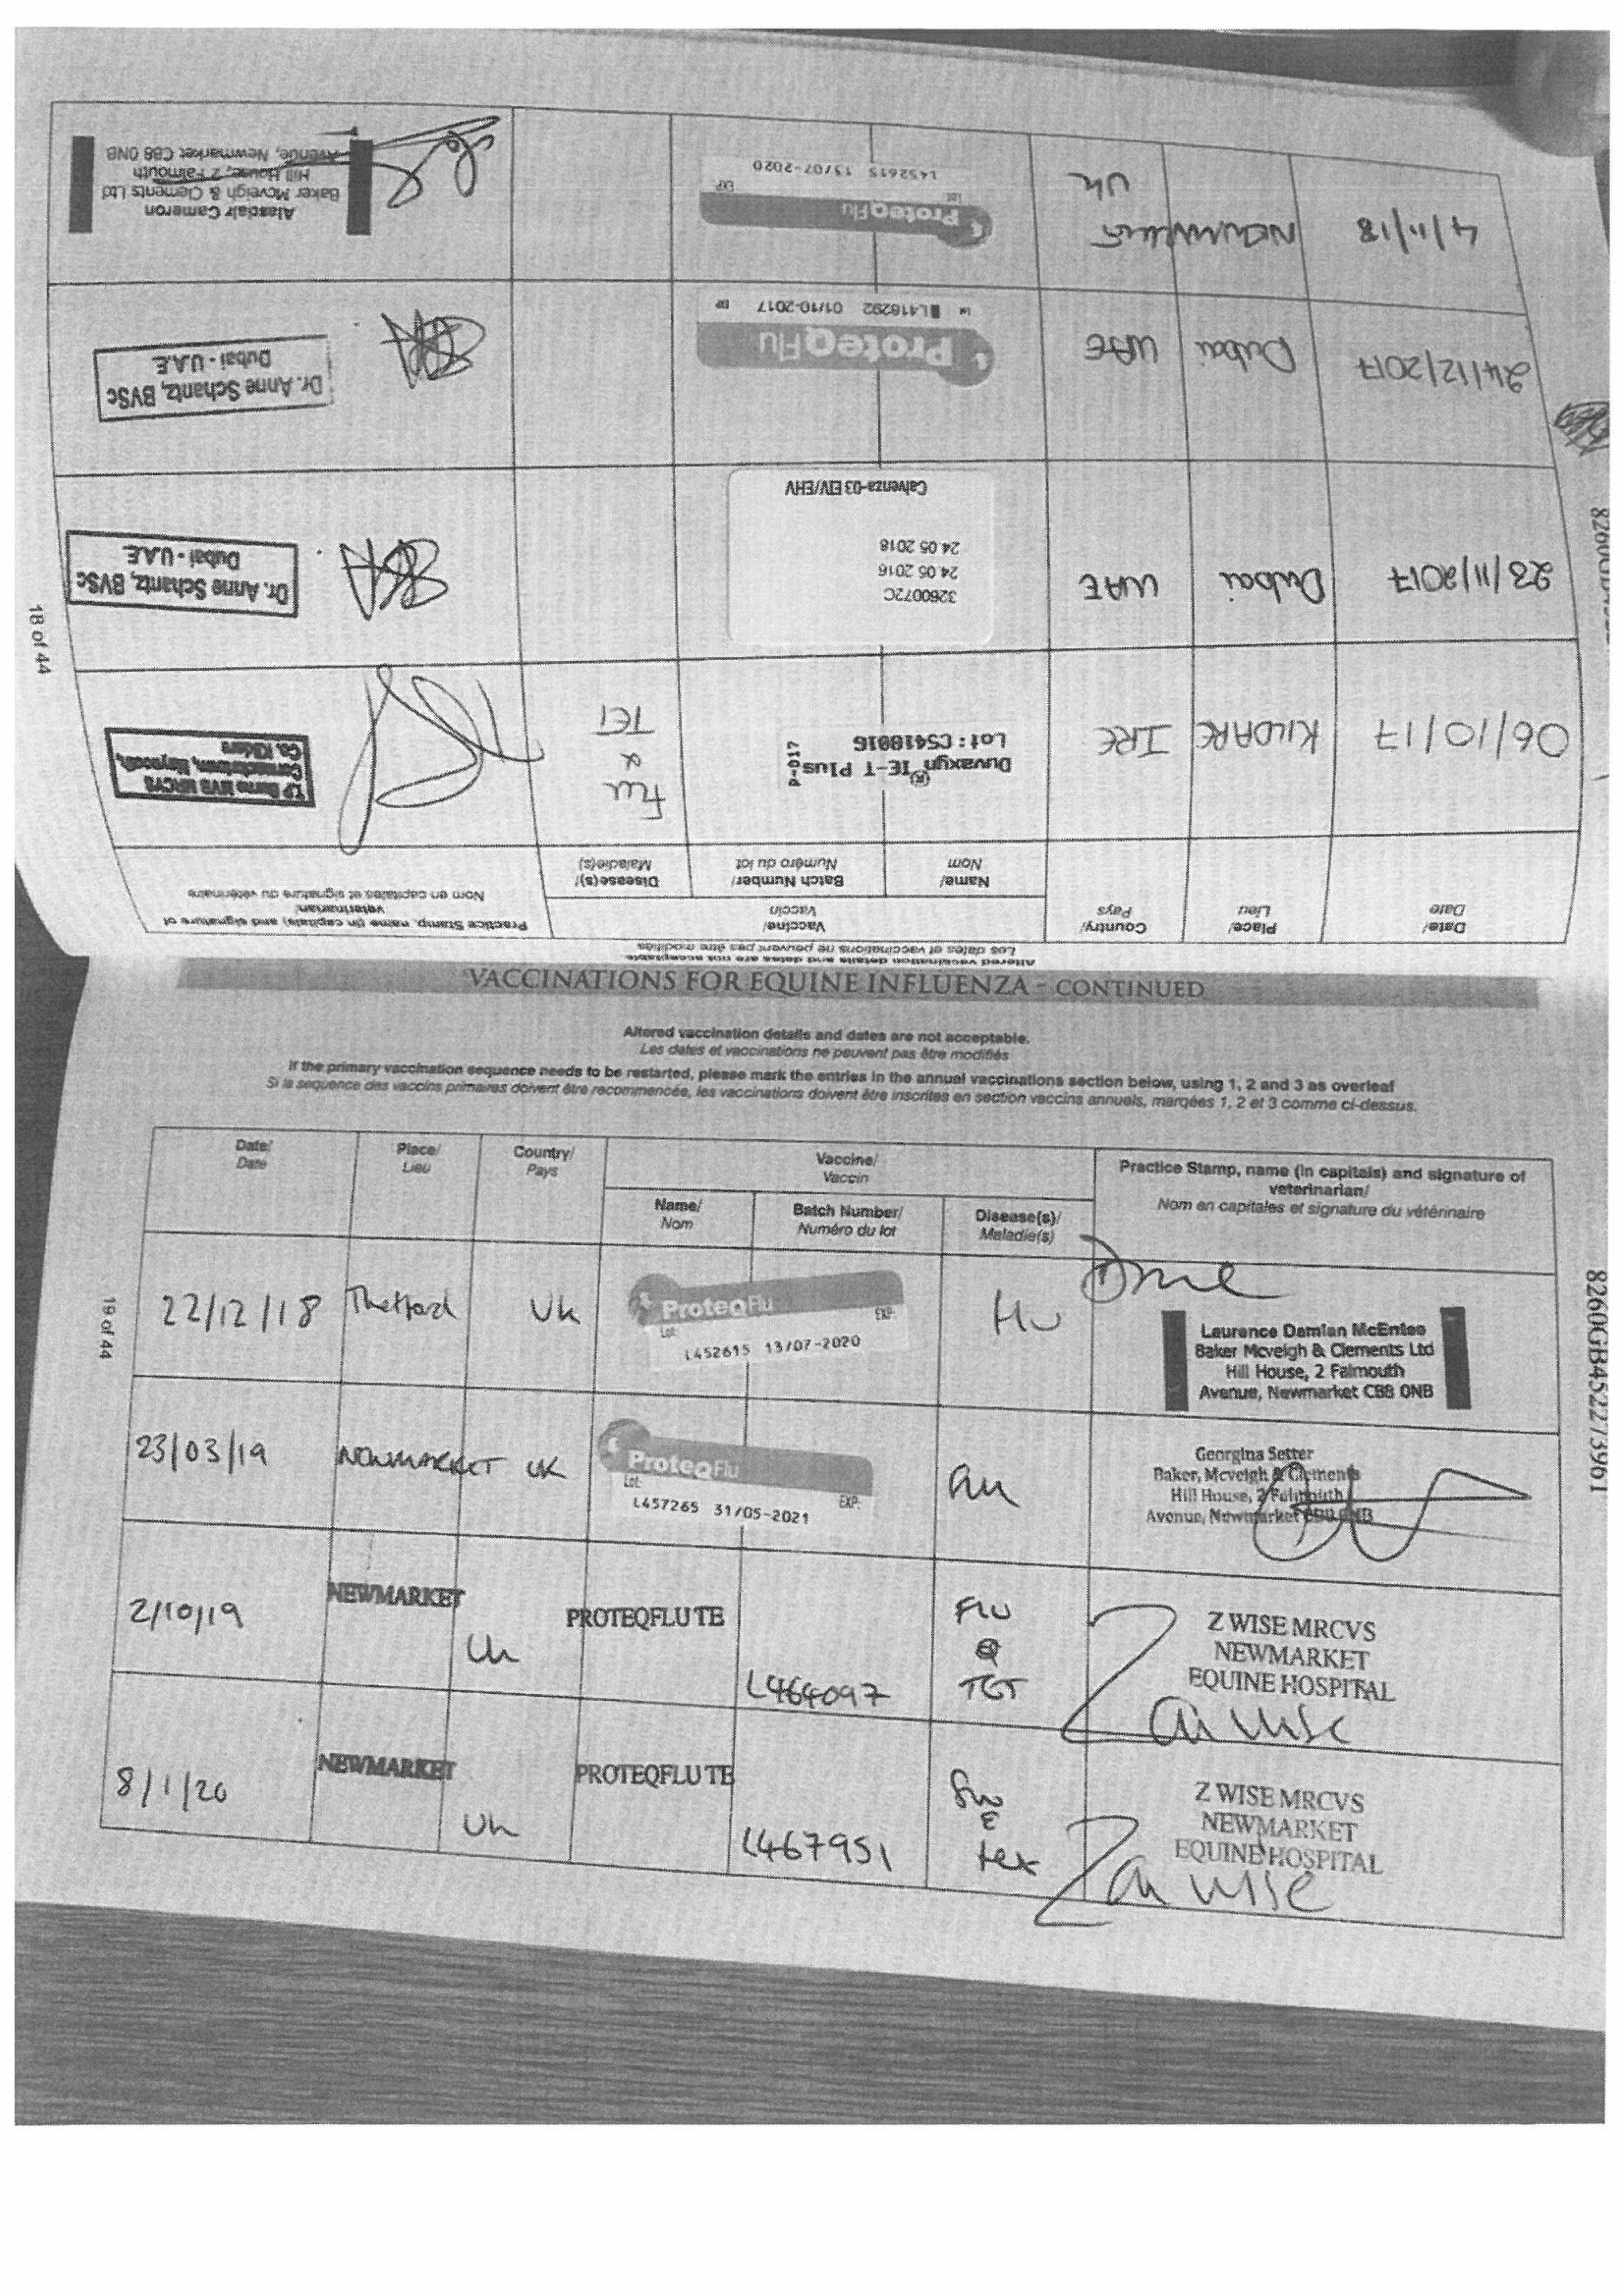 18 of 44
Altered vaccination details and dates are not acceptable
Les dates et vaccinations ne peuvent pas être modifiés
Date/
Date
Place/
Lieu
Country/
Pays
Vaccine/
Vaccin
Name/
Nom
Batch Number/
Numéro du lot
Disease(s)/
Maladie(s)
Practice Stamp, name (in capitals) and signature of
veterinarian/
Nom en capitales et signature du vétérinaire
06/10/17
KILDARE
IRE
Duvaxyn® IE-T Plus
Lot: C541801G
P-017
Flu
&
TET
Co. Kildare
23/11/2017
Dubai
UAE
3260072C
24 05 2016
24 05 2018
Calvenza-03 EIV/EHV
Dr. Anne Schantz, BVSc
Dubai - U.A.E.
24/12/2017
Dubai
UAE
ProteqFlu
L416292 01/10-2017
Dr. Anne Schantz, BVSc
Dubai - U.A.E.
4/11/18
Newmarket
Uk
ProteqFlu
Lot EXP
L452615 13/07-2020
Alasdair Cameron
Baker Mcveigh & Clements Ltd
Hill House, 2 Falmouth
Avenue, Newmarket CB8 0NB
VACCINATIONS FOR EQUINE INFLUENZA - CONTINUED
Altered vaccination details and dates are not acceptable.
Les dates et vaccinations ne peuvent pas être modifiés
If the primary vaccination sequence needs to be restarted, please mark the entries in the annual vaccinations section below, using 1, 2 and 3 as overleaf
Si la sequence des vaccins primaires doivent être recommencée, les vaccinations doivent être inscrites en section vaccins annuels, marqées 1, 2 et 3 comme ci-dessus.
Date/
Date
Place/
Lieu
Country/
Pays
Vaccine/
Vaccin
Name/
Nom
Batch Number/
Numéro du lot
Disease(s)/
Maladie(s)
Practice Stamp, name (in capitals) and signature of
veterinarian/
Nom en capitales et signature du vétérinaire
22/12/18
Thetford
Uk
ProteqFlu
Lot: EXP:
L452615 13/07-2020
Flu
Laurence Damian McEntee
Baker Mcveigh & Clements Ltd
Hill House, 2 Falmouth
Avenue, Newmarket CB8 0NB
23/03/19
NEWMARKET
UK
ProteqFlu
Lot: EXP:
L457265 31/05-2021
Flu
Georgina Setter
Baker, Mcveigh & Clements
Hill House, 2 Falmouth
Avenue, Newmarket CB8 0NB
2/10/19
NEWMARKET
Uk
PROTEQFLU TE
L464097
FLU
&
TET
Z WISE MRCVS
NEWMARKET
EQUINE HOSPITAL
Zoi Wise
8/1/20
NEWMARKET
Uk
PROTEQFLU TE
L467951
Flu
E
tex
Z WISE MRCVS
NEWMARKET
EQUINE HOSPITAL
Zoi Wise
19 of 44
8260GB452273961